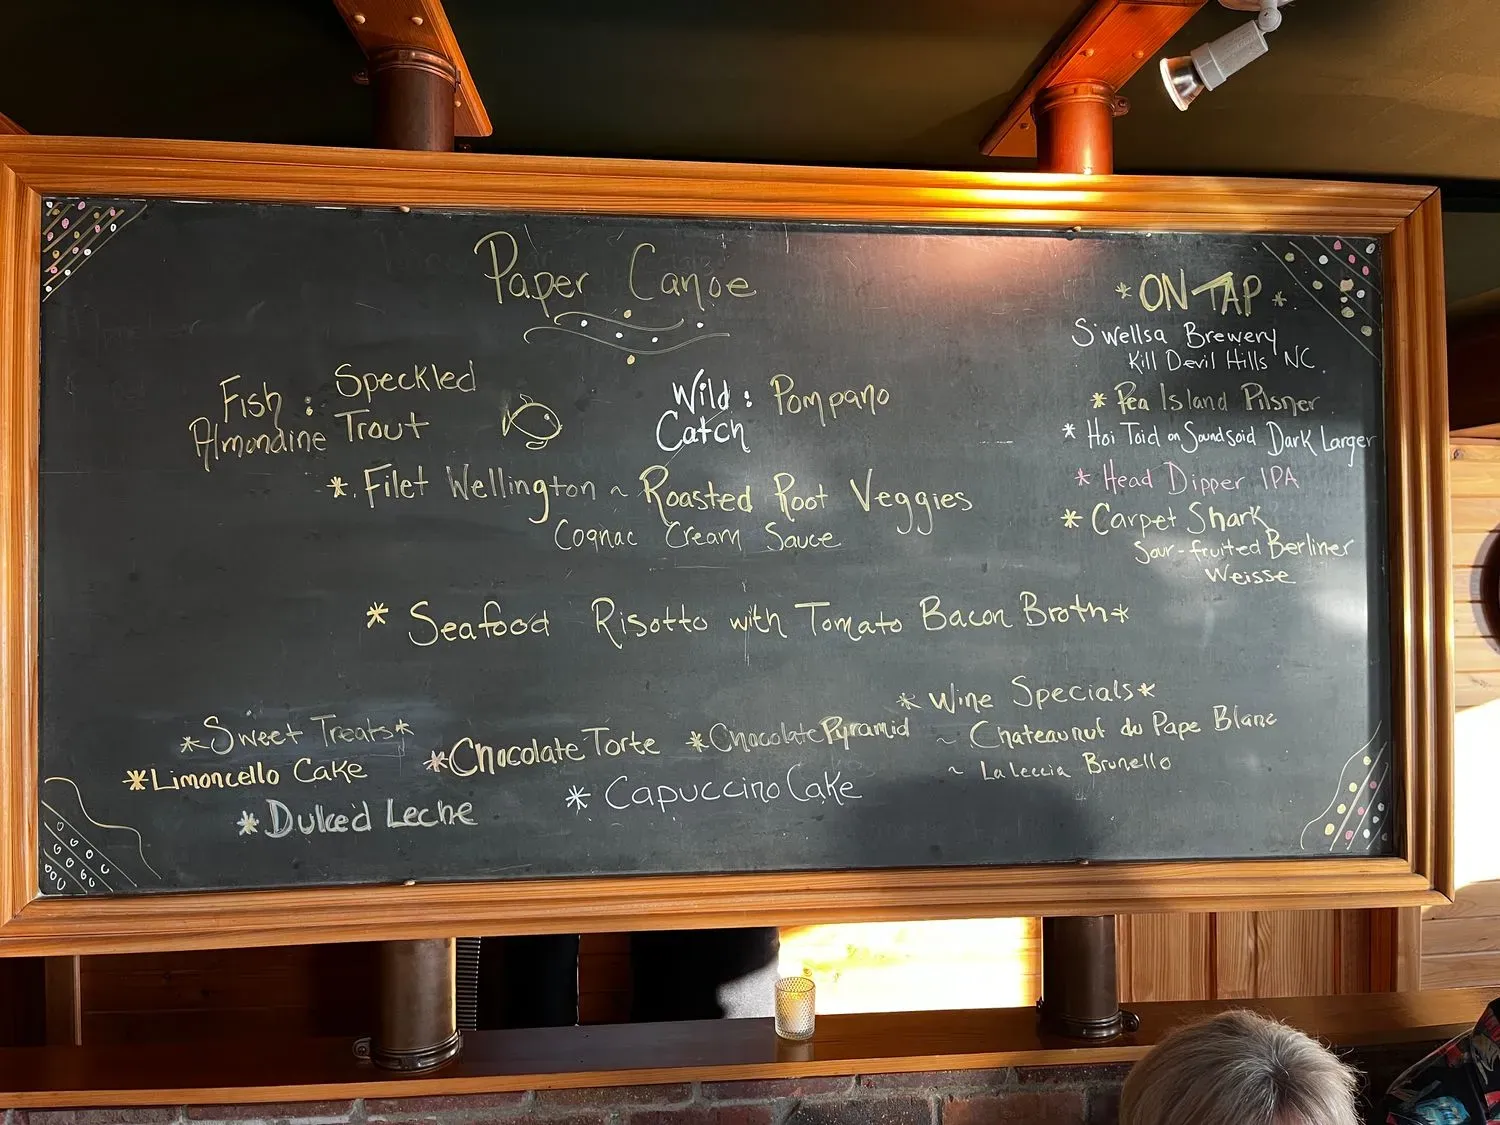 Paper Canoe
Fish : Speckled
Almondine Trout
Wild : Pompano
Catch
* Filet Wellington ~ Roasted Root Veggies
Cognac Cream Sauce
* Seafood Risotto with Tomato Bacon Broth *
* ON TAP *
Swellsa Brewery
Kill Devil Hills NC.
* Pea Island Pilsner
* Hoi Toid on Soundsoid Dark Larger
* Head Dipper IPA
* Carpet Shark
Sour-fruited Berliner
Weisse
* Sweet Treats *
* Limoncello Cake
* Dulced Leche
* Chocolate Torte
* Chocolate Pyramid
* Capuccino Cake
* Wine Specials *
~ Chateaunuf du Pape Blanc
~ La Leccia Brunello